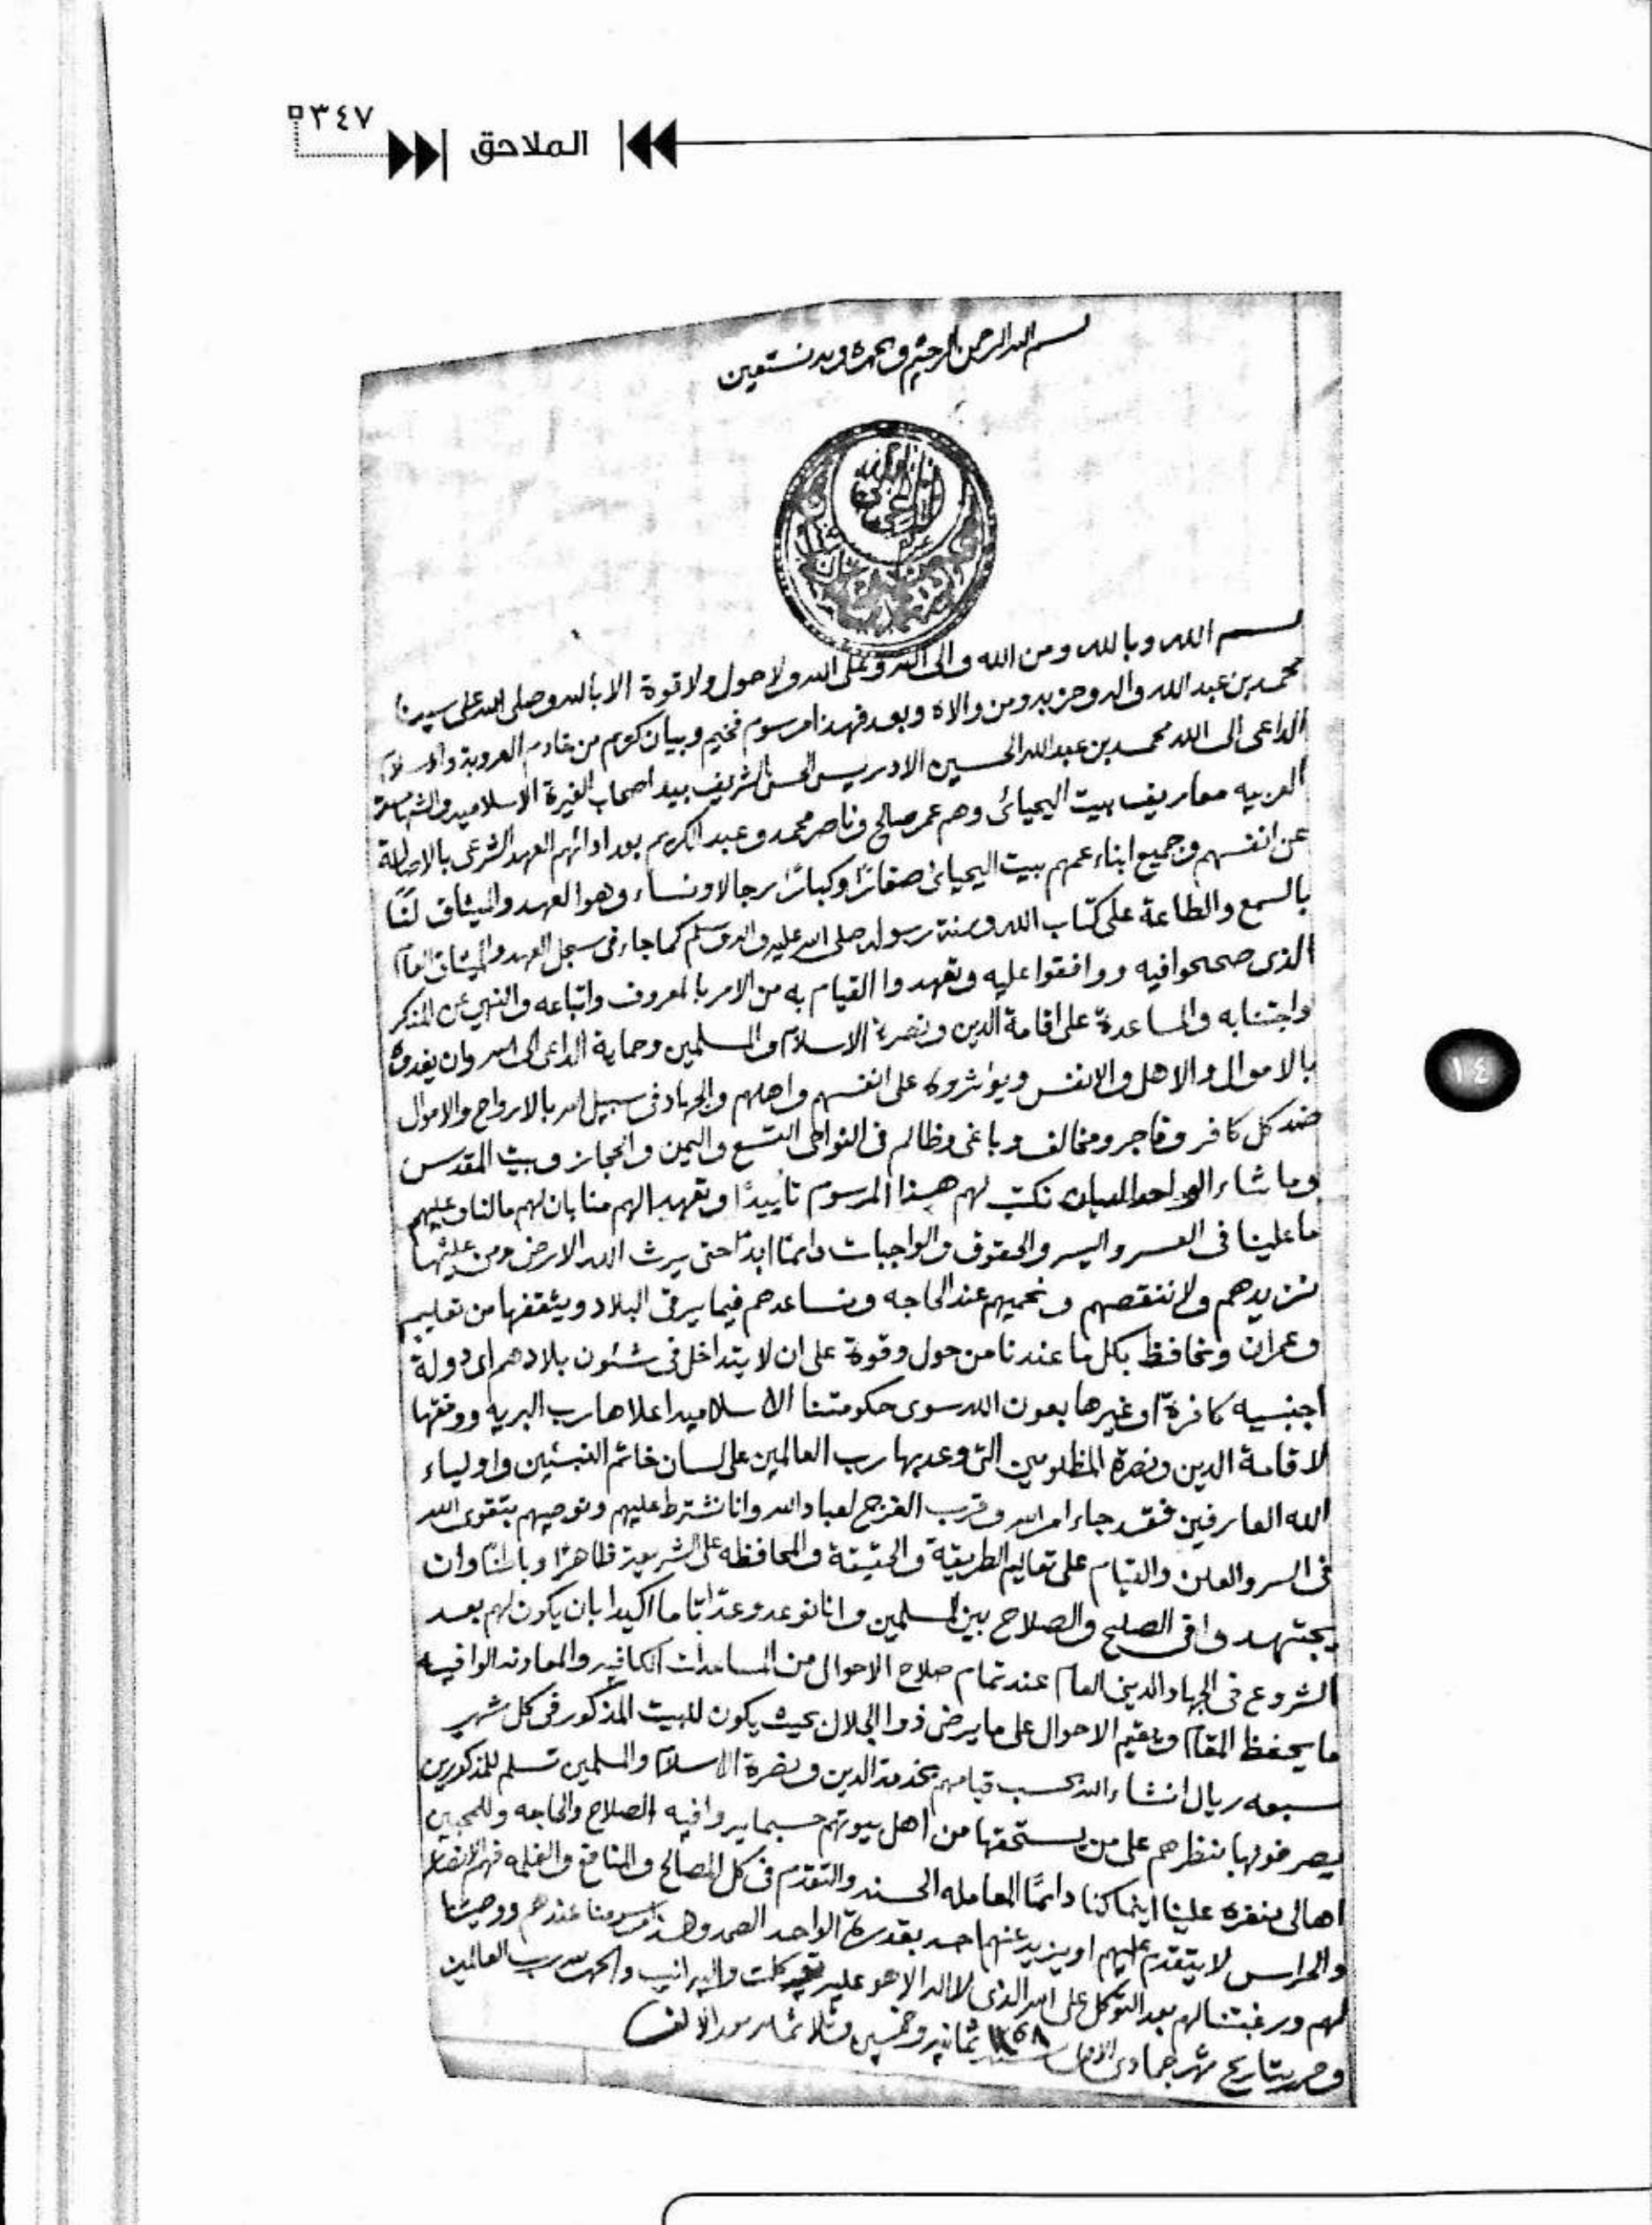 ٣٤٧
الملاحق
بسم الله الرحمن الرحيم وبحمده وبه نستعين
بسم الله وبالله ومن الله والى الله وعلى الله ولا حول ولا قوة الا بالله وصلى الله على سيدنا
محمد بن عبد الله واله وحزبه ومن والاه وبعد فهذا مرسوم فخيم وبيان كريم من خادم العروبة والاسلام
الداعى الى الله محمد بن عبد الله الحسين الادريسى الحسنى الشريف بيد اصحاب الغيرة الاسلاميه والشهامة
العربيه معاريف بيت اليحيائى وهم عمر صالح وناصر محمد وعبد الكريم بعد ادائهم العهد الشرعى بالاصالة
عن انفسهم وجميع ابناء عمهم بيت اليحيائى صغارًا وكبارًا رجالا ونساء وهو العهد والميثاق لنا
بالسمع والطاعة على كتاب الله وسنة رسوله صلى الله عليه واله وسلم كما جاء فى سجل العهد والميثاق العام
الذى صححوا فيه ووافقوا عليه وتعهدوا القيام به من الامر بالمعروف واتباعه والنهي عن المنكر
واجتنابه والمساعدة على اقامة الدين ونصرة الاسلام والمسلمين وحماية الداعى الى الله وان يفدوه
بالاموال والاهل والانفس ويؤثروه على انفسهم واهلهم والجهاد فى سبيل الله بالارواح والاموال
ضد كل كافر وفاجر ومخالف وباغى وظالم فى النواحى التسع واليمن والحجاز وبيت المقدس
وما شاء الواحد الديان نكتب لهم هذا المرسوم تأييدًا وتعهدا لهم منا بان لهم مالنا وعليهم
ما علينا فى العسر واليسر والحقوق والواجبات دائمًا ابدًا حتى يرث الله الارض ومن عليها
نزيدهم ولا ننقصهم ونحميهم عند الحاجه ونساعدهم فيما يرقى البلاد ويثقفها من تعليم
وعمران ونحافظ بكل ما عندنا من حول وقوة على ان لا يتداخل فى شئون بلادهم اى دولة
اجنبيه كافرة او غيرها بعون الله سوى حكومتنا الاسلاميه اعلاها رب البريه ووفقها
لاقامة الدين ونصرة المظلومين التى وعد بها رب العالمين على لسان خاتم النبيين واولياء
الله العارفين فقد جاء امر الله وقرب الفرج لعباد الله وانا نشترط عليهم ونوصيهم بتقوى الله
فى السر والعلن والقيام على تعاليم الطريقة والحقيقة والمحافظه على الشريعة ظاهرًا وباطنًا وان
يجتهدوا فى الصلح والصلاح بين المسلمين وانا نوعد وعدًا تاما اكيدا بان يكون لهم بعد
الشروع فى الجهاد الدينى العام عند تمام صلاح الاحوال من المساعدات الكافيه والمعاونه الوافيه
ما يحفظ المقام ويقيم الاحوال على ما يرض ذو الجلال بحيث يكون للبيت المذكور فى كل شهر
سبعه ريال انشاء الله بحسب قيامهم بخدمة الدين ونصرة الاسلام والمسلمين تسلم للمذكورين
يصرفونها بنظرهم على من يستحقها من اهل بيوتهم حسبما يروا فيه الصلاح والحاجه وللمحبين
اهالى علينا اينما كنا دائمًا المعامله الحسنه والتقدم فى كل المصالح والمنافع فهم الانصار
والحراس لا يتقدم عليهم او يزيد عنهم احد بقدرة الواحد الصمد وهذا مرسومنا عندهم ووصيتنا
لهم ورغبتنا لهم بعد التوكل على الله الذى لا اله الا هو عليه توكلت واليه انيب والحمد لله رب العالمين
وحرر بتاريخ شهر جمادى الاول سنة ١٣٥٨ ثمانيه وخمسين وثلاثمائه بعد الالف
١٤